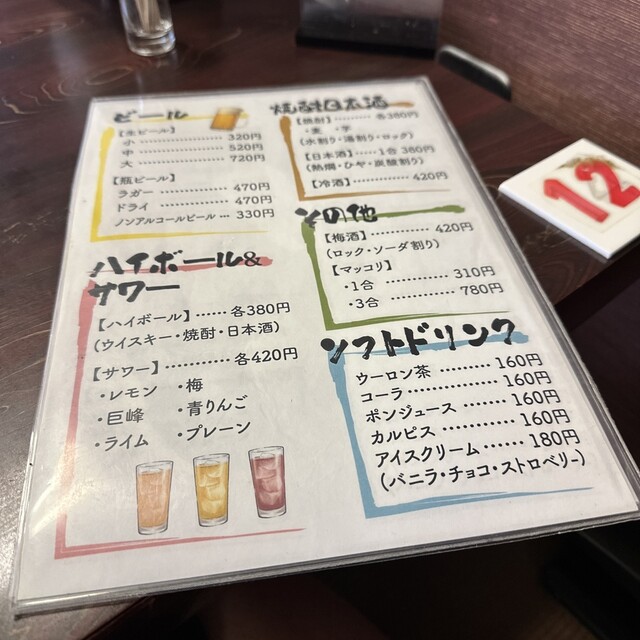 ビール
【生ビール】
小 ………………… 320円
中 ………………… 520円
大 ………………… 720円
【瓶ビール】
ラガー …………… 470円
ドライ …………… 470円
ノンアルコールビール … 330円
ハイボール&
サワー
【ハイボール】 …… 各380円
(ウイスキー・焼酎・日本酒)
【サワー】 ………… 各420円
・レモン ・梅
・巨峰 ・青りんご
・ライム ・プレーン
焼酎日本酒
【焼酎】 ………… 各380円
・麦 ・芋
(水割り・湯割り・ロック)
【日本酒】 …… 1合 380円
(熱燗・ひや・炭酸割り)
【冷酒】 …………… 420円
その他
【梅酒】 …………… 420円
(ロック・ソーダ割り)
【マッコリ】
・1合 …………… 310円
・3合 …………… 780円
ソフトドリンク
ウーロン茶 ………… 160円
コーラ ……………… 160円
ポンジュース ……… 160円
カルピス …………… 160円
アイスクリーム …… 180円
(バニラ・チョコ・ストロベリー)
12